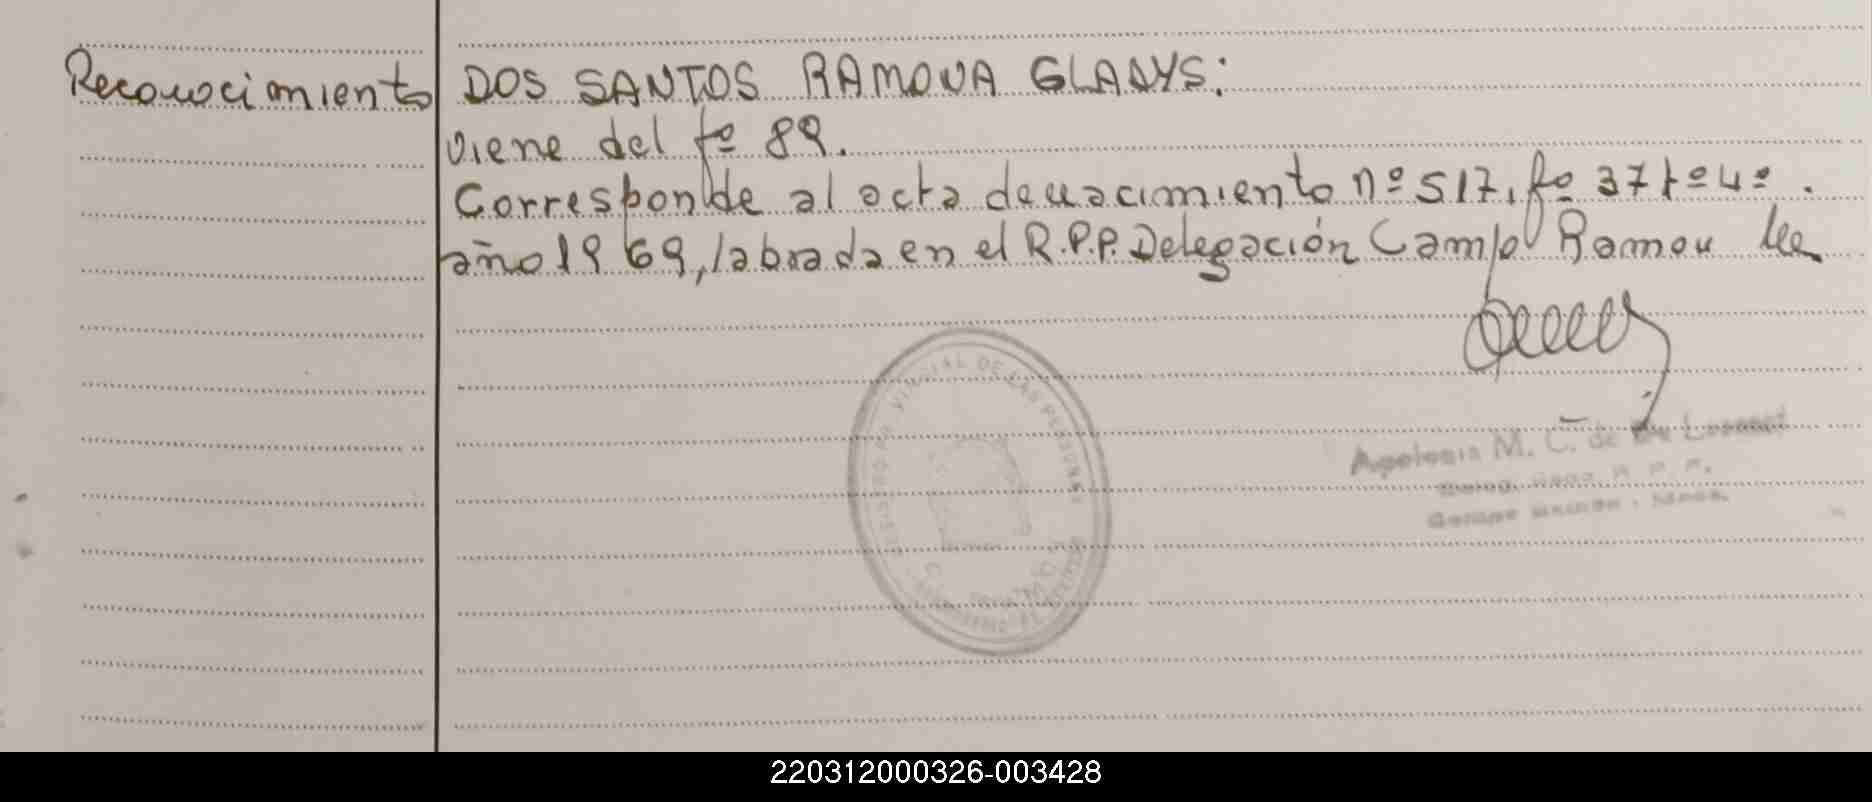 Reconocimiento
DOS SANTOS RAMONA GLADYS:
viene del fº 89.
Corresponde al acta de nacimiento nº 517, fº 37 tº 4º.
año 1969, labrada en el R.P.P. Delegación Campo Ramon
REGISTRO PROVINCIAL DE LAS PERSONAS
M. C. de
220312000326-003428